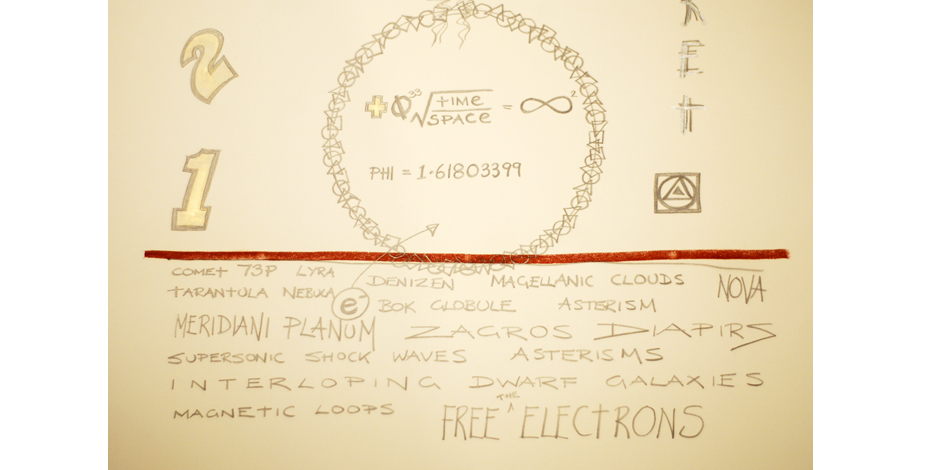 2
1
+ Φ³³ √TIME/SPACE = ∞²
PHI = 1.61803399
E
t
COMET 73P LYRA DENIZEN MAGELLANIC CLOUDS NOVA
TARANTULA NEBULA e⁻ BOK GLOBULE ASTERISM
MERIDIANI PLANUM ZAGROS DIAPIRS
SUPERSONIC SHOCK WAVES ASTERISMS
INTERLOPING DWARF GALAXIES
MAGNETIC LOOPS FREE THE ELECTRONS